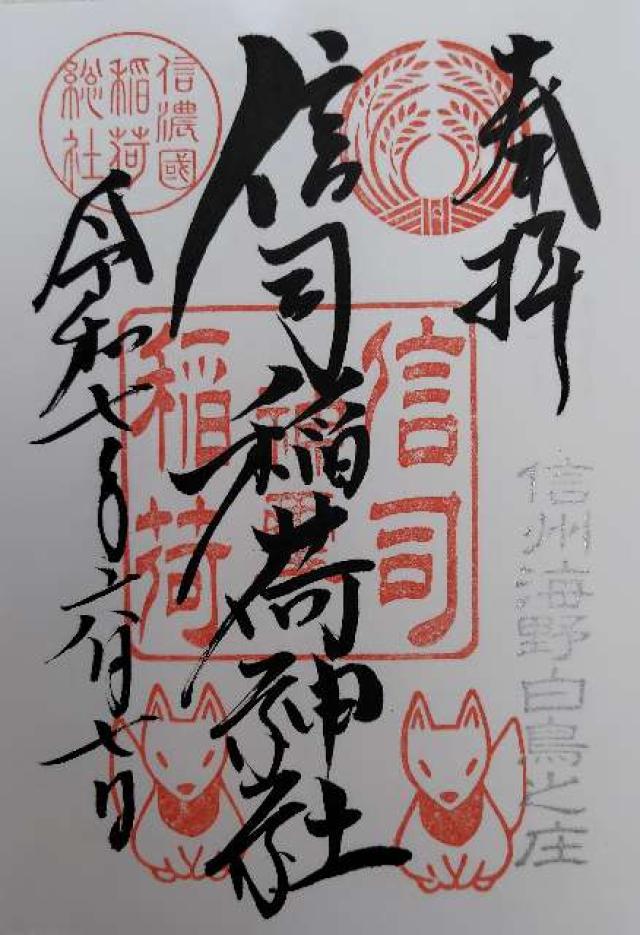 奉拝
信州海野白鳥之庄
信司稲荷神社
信司
稲荷
信濃國
稲荷
総社
令和七年六月七日